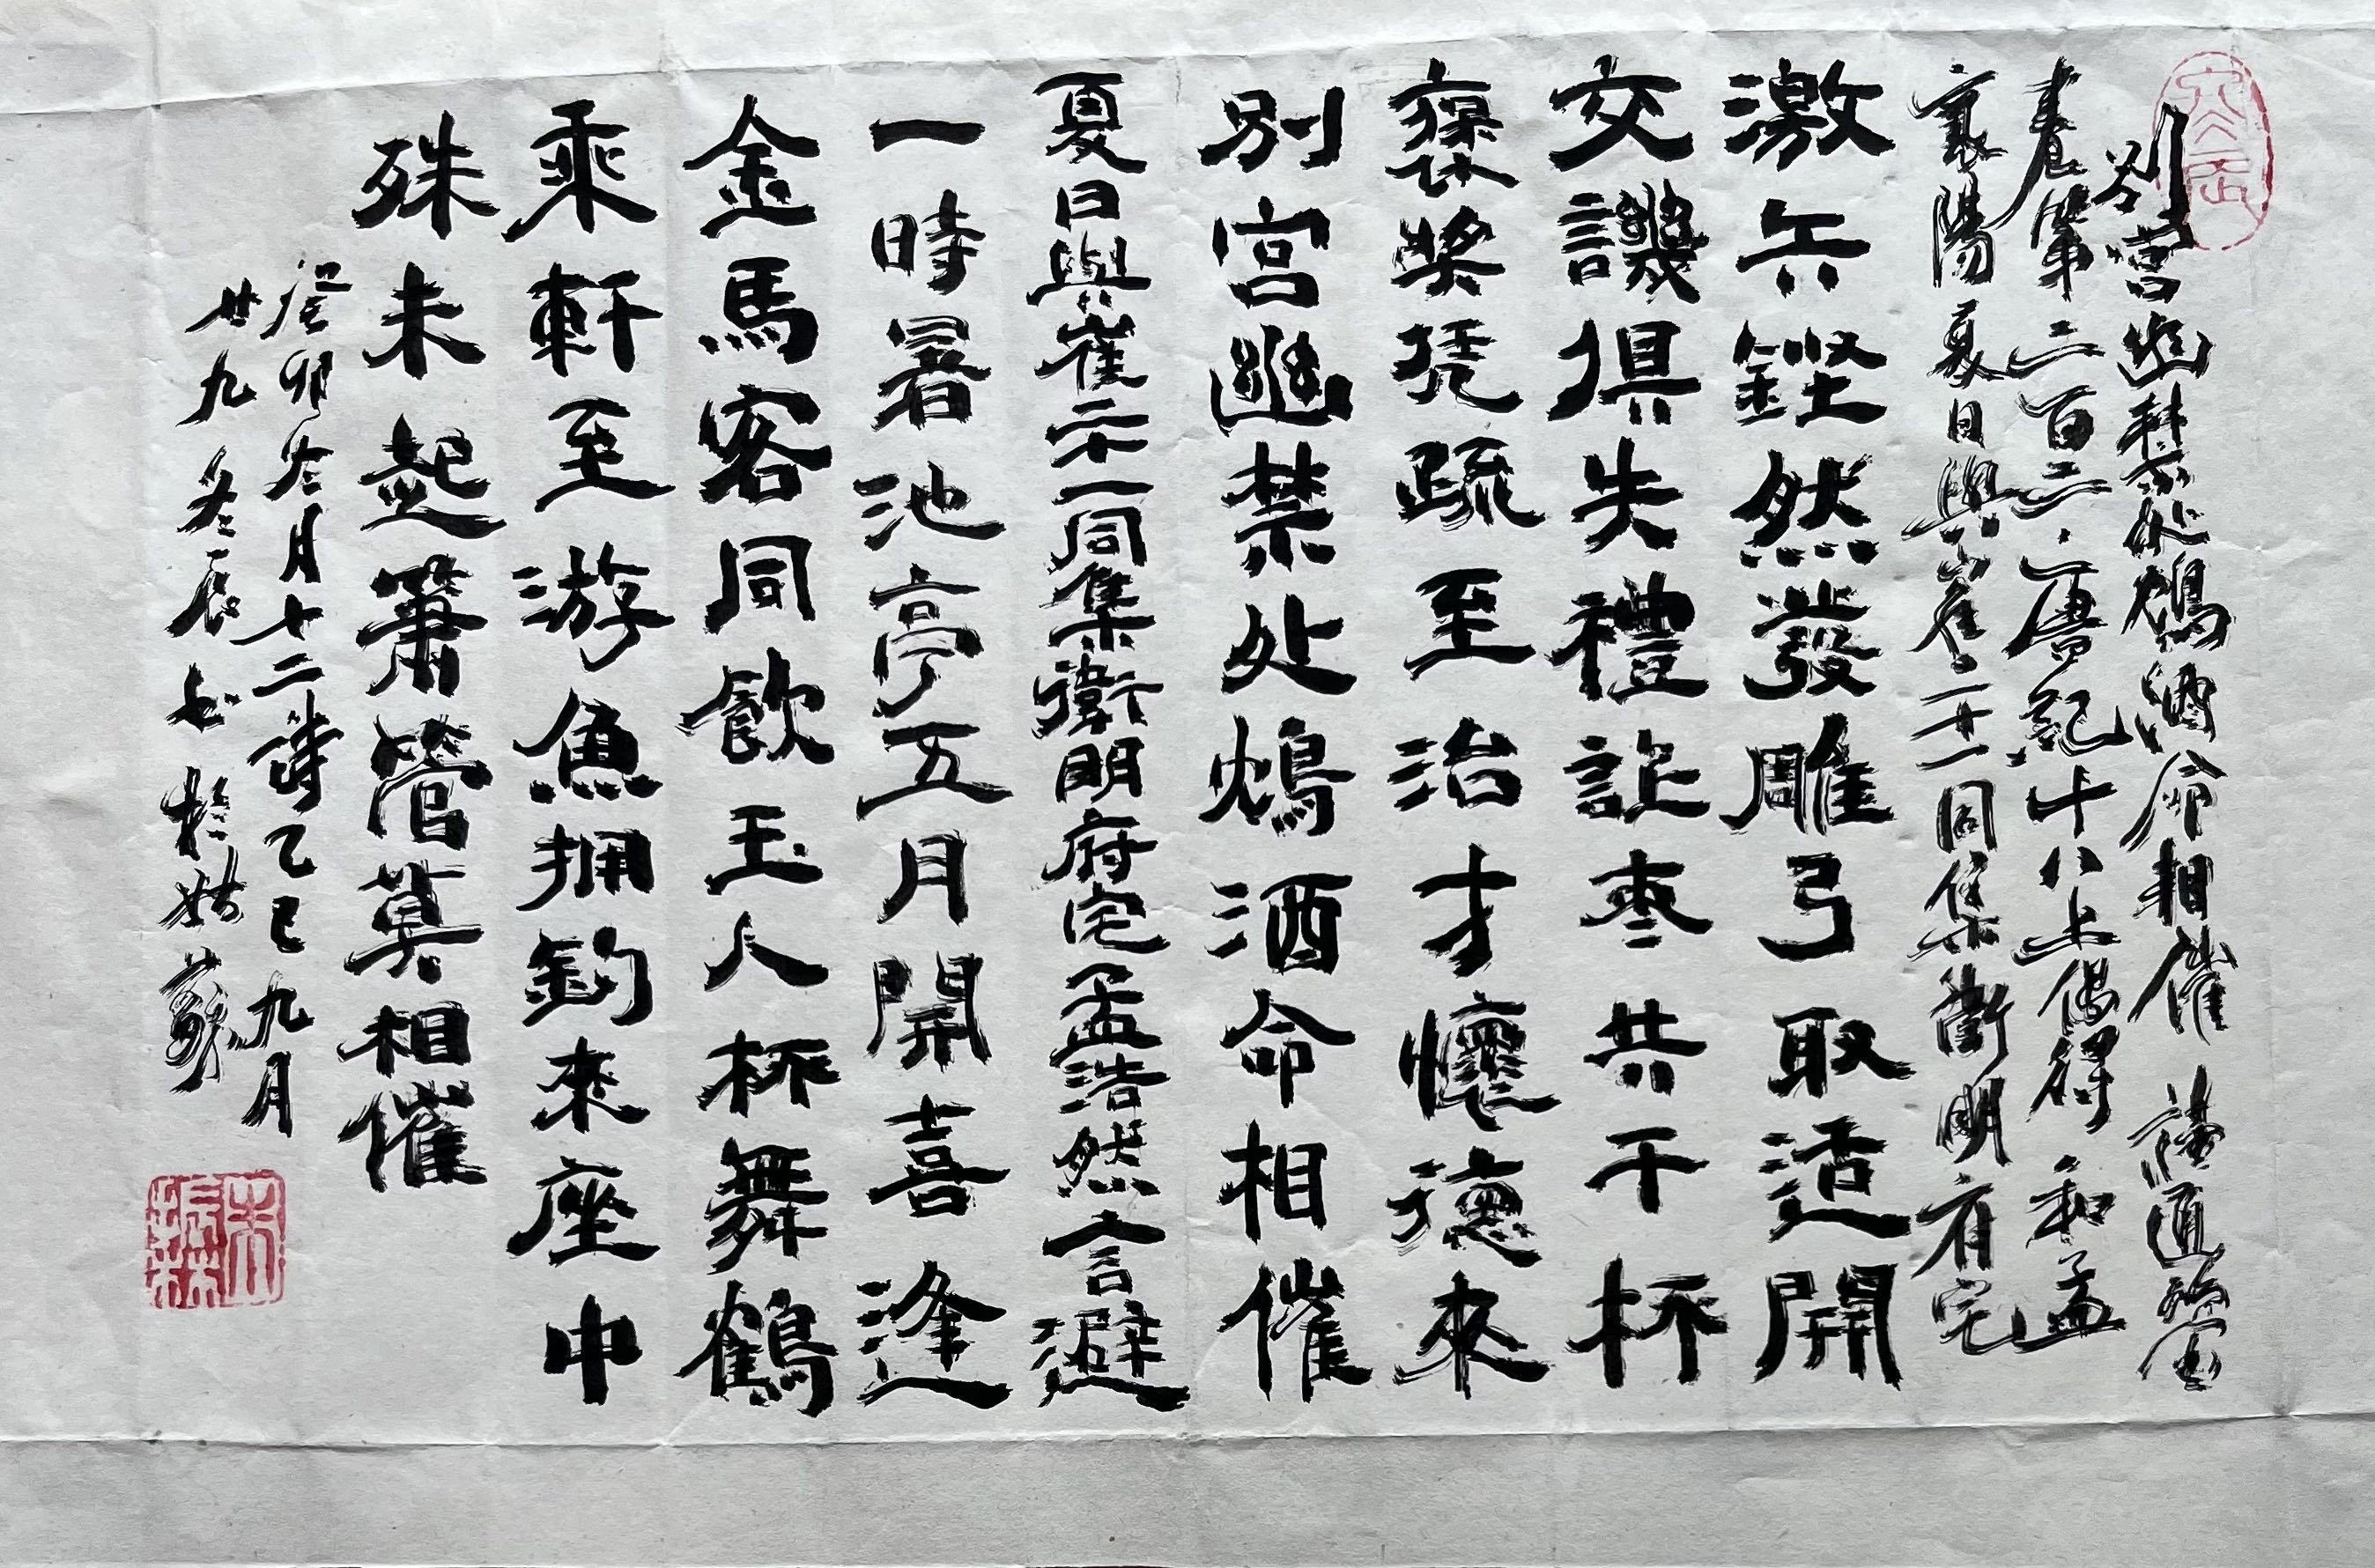 別宮幽禁处鴆酒命相催 讀通鑒
卷第二百二唐紀十八上偶得和孟
襄陽夏日與崔二十一同集衛明府宅
激兵鏗然發雕弓取适開
交譏俱失禮詎枣共干杯
褒奖凭疏至治才懷德來
別宮幽禁处鴆酒命相催
夏日與崔二十一同集衛明府宅孟浩然言避
一時暑池亭五月開喜逢
金馬客同飲玉人杯舞鶴
乘軒至游魚拥釣來座中
殊未起簫管莫相催
癸卯冬月十二詩乙巳九月
廿九冬辰書於姑蘇